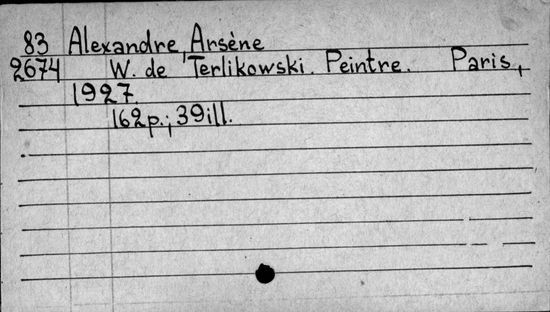 83 Alexandre, Arsène
2674 W. de Terlikowski. Peintre. Paris,
1927.
162p.; 39ill.